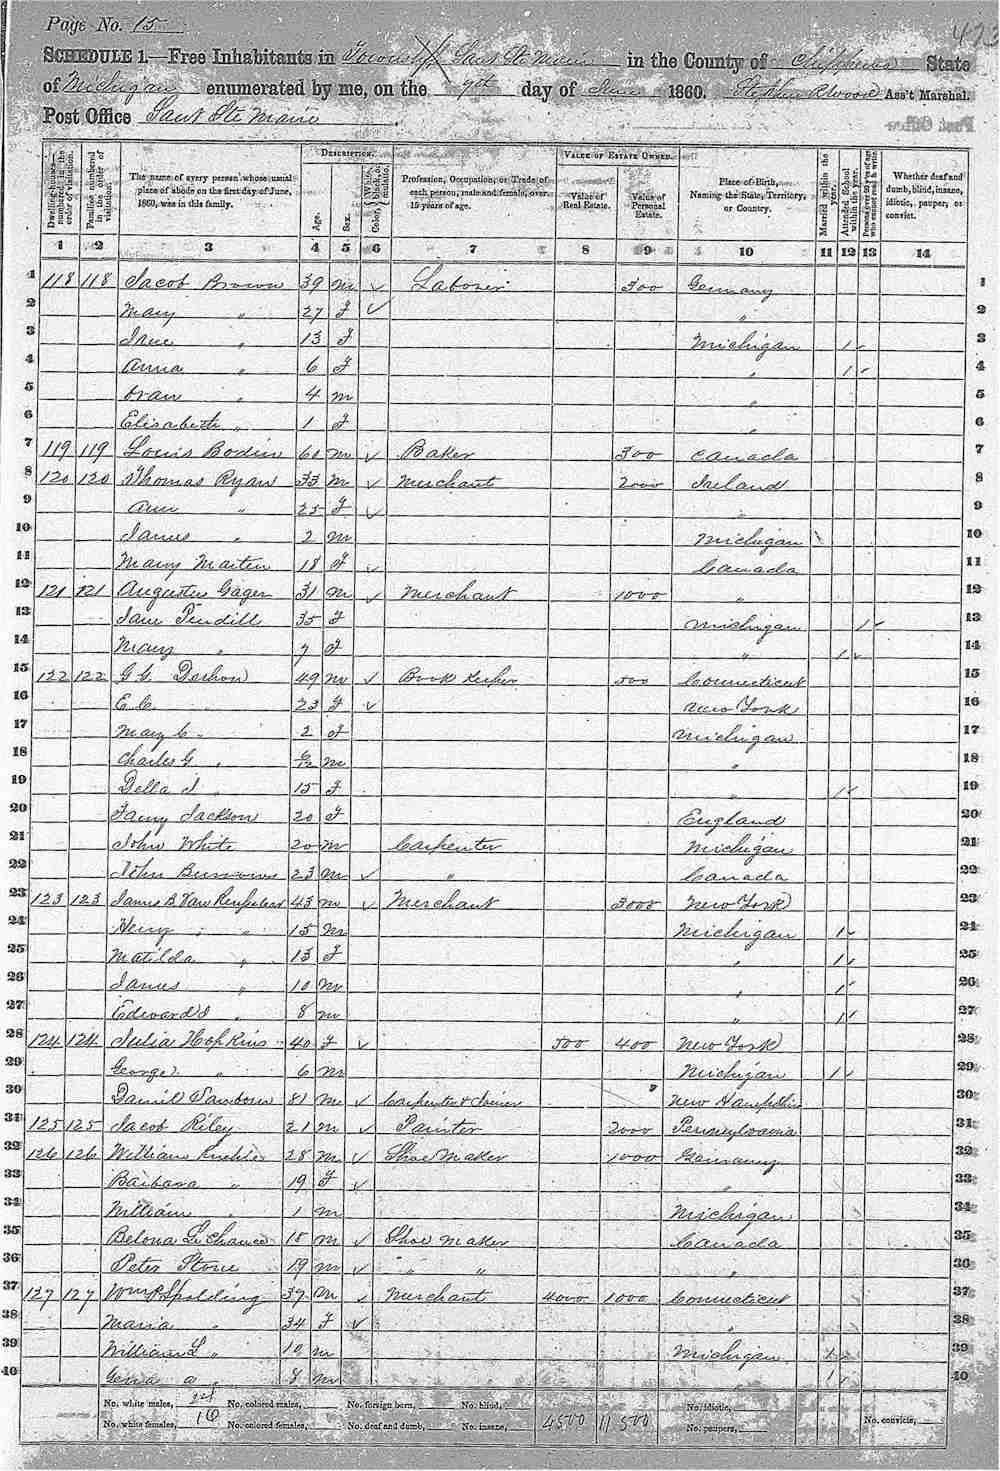 Page No. 15
SCHEDULE 1.—Free Inhabitants in Township Saut Ste Marie in the County of Chippewa State
of Michigan enumerated by me, on the 9th day of June 1860. Ass't Marshal.
Post Office Saut Ste Marie
DESCRIPTION. VALUE OF ESTATE OWNED.
Dwelling-houses—numbered in the order of visitation. Families numbered in the order of visitation. The name of every person whose usual place of abode on the first day of June, 1860, was in this family. Age. Sex. Color, White, black, or mulatto. Profession, Occupation, or Trade of each person, male and female, over 15 years of age. Value of Real Estate. Value of Personal Estate. Place of Birth, Naming the State, Territory, or Country. Married within the year. Attended School within the year. Persons over 20 y'rs of age who cannot read & write. Whether deaf and dumb, blind, insane, idiotic, pauper, or convict.
1 2 3 4 5 6 7 8 9 10 11 12 13 14
1 118 118 Jacob Brown 39 m ✓ Laborer 300 Germany 1
2 Mary " 27 F ✓ " 2
3 " 13 F Michigan 1 3
4 Anna " 6 F " 1 4
5 " 4 m " 5
6 Elisabeth " 1 F " 6
7 119 119 Louis Bodin 60 m ✓ Baker 300 Canada 7
8 120 120 Thomas Ryan 33 m ✓ Merchant 2000 Ireland 8
9 Ann " 25 F ✓ " 9
10 James " 2 m Michigan 10
11 Mary Martin 18 F ✓ Canada 11
12 121 121 Augustus Gager 31 m ✓ Merchant 1000 " 12
13 Jane Pendill 35 F Michigan 1 13
14 Mary " 7 F " 1 14
15 122 122 49 m ✓ Book Keeper 500 Connecticut 15
16 E C " 23 F ✓ New York 16
17 Mary C " 2 F Michigan 17
18 Charles G " m " 18
19 Della J " 15 F " 1 19
20 Fanny Jackson 20 F England 20
21 John White 20 m Carpenter Michigan 21
22 John Burrows 23 m ✓ " Canada 22
23 123 123 James B Van Renselear 43 m ✓ Merchant 3000 New York 23
24 Henry " " 15 m Michigan 1 24
25 Matilda " 13 F " 1 25
26 James " 10 m " 1 26
27 Edward " 8 m " 1 27
28 124 124 Julia Hopkins 40 F ✓ 500 400 New York 28
29 George " 6 m Michigan 1 29
30 Daniel Sanborn 81 m ✓ Carpenter & Joiner New Hampshire 30
31 125 125 Jacob Riley 21 m ✓ Painter 2000 Pennsylvania 31
32 126 126 William 28 m ✓ Shoe Maker 1000 Germany 32
33 Barbara " 19 F ✓ " 33
34 William " 1 m Michigan 34
35 LeChance 18 m ✓ Shoe maker Canada 35
36 Peter Stone 19 m ✓ " " " 36
37 127 127 Wm P Spalding 37 m ✓ Merchant 4000 1000 Connecticut 37
38 Maria " 34 F ✓ " 38
39 William L " 10 m Michigan 1 39
40 8 m 1 40
No. white males, 24 No. colored males, No. foreign born, No. blind, 4500 11500 No. idiotic,
No. white females, 16 No. colored females, No. deaf and dumb, No. insane, No. paupers, No. convicts,